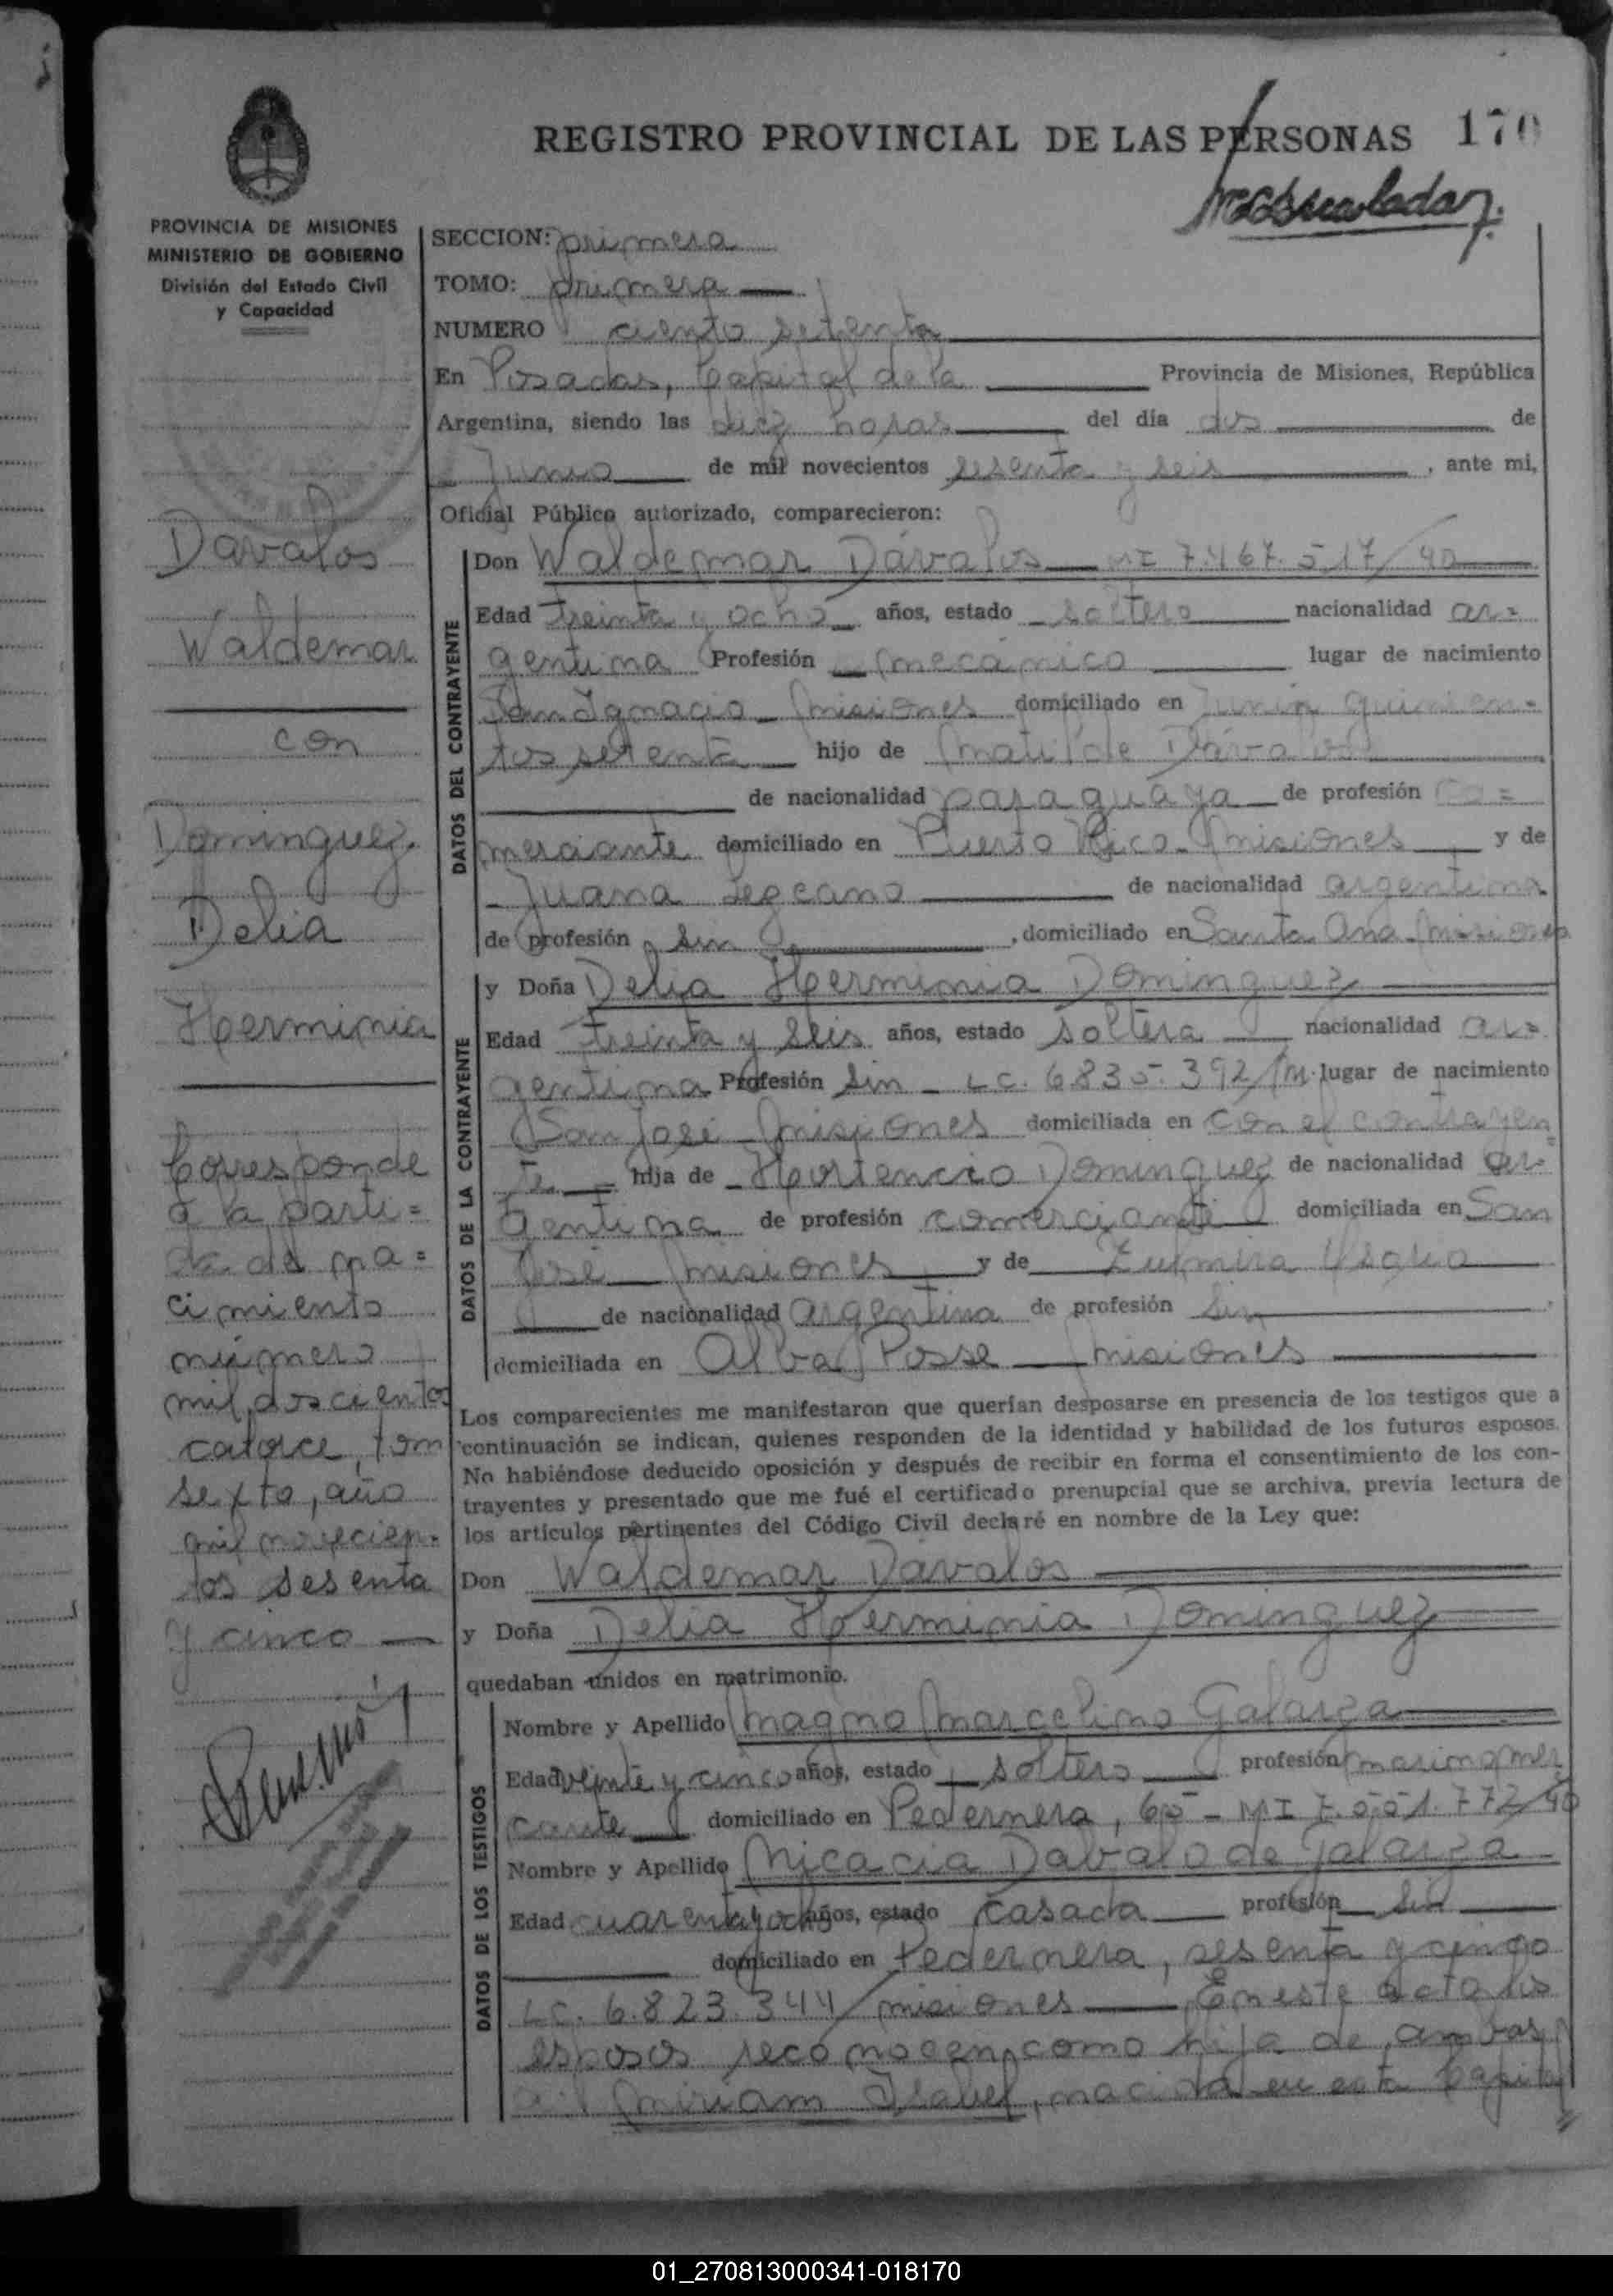 REGISTRO PROVINCIAL DE LAS PERSONAS 170
PROVINCIA DE MISIONES
MINISTERIO DE GOBIERNO
División del Estado Civil
y Capacidad
SECCION: primera
TOMO: primera
NUMERO ciento setenta
En Posadas, Capital de la Provincia de Misiones, República
Argentina, siendo las diez horas del día dos de
Junio de mil novecientos sesenta y seis, ante mi,
Oficial Público autorizado, comparecieron:
Davalos
Waldemar
con
Dominguez
Delia
Herminia
Corresponde
a la parti=
da de na=
cimiento
número
mil doscientos
catorce, tom
sexto, año
mil novecien-
tos sesenta
y cinco
DATOS DEL CONTRAYENTE
Don Waldemar Dávalos MI 7.467.517/40
Edad treinta y ocho años, estado soltero nacionalidad ar=
gentina Profesión mecánico lugar de nacimiento
San Ignacio - Misiones domiciliado en Junín quinien=
tos setenta hijo de Matilde Dávalos
de nacionalidad paraguaya de profesión co=
merciante domiciliado en Puerto Rico - Misiones y de
Juana de nacionalidad argentina
de profesión sin, domiciliado en Santa Ana - Misiones
DATOS DE LA CONTRAYENTE
y Doña Delia Herminia Dominguez
Edad treinta y seis años, estado soltera nacionalidad ar=
gentina Profesión sin - LC. 6.835.392/M. lugar de nacimiento
San José - Misiones domiciliada en con el contrayen=
te hija de Hortencio Dominguez de nacionalidad ar=
gentina de profesión comerciante domiciliada en San
José Misiones y de Zulmira
de nacionalidad argentina de profesión sin
domiciliada en Alba Posse Misiones
Los comparecientes me manifestaron que querían desposarse en presencia de los testigos que a
continuación se indican, quienes responden de la identidad y habilidad de los futuros esposos.
No habiéndose deducido oposición y después de recibir en forma el consentimiento de los con-
trayentes y presentado que me fué el certificado prenupcial que se archiva, previa lectura de
los artículos pertinentes del Código Civil declaré en nombre de la Ley que:
Don Waldemar Dávalos
y Doña Delia Herminia Dominguez
quedaban unidos en matrimonio.
DATOS DE LOS TESTIGOS
Nombre y Apellido Magno Marcelino Galarza
Edad veinte y cinco años, estado soltero profesión marino mer
cante domiciliado en Pedernera, 65 - MI 7.551.772/40
Nombre y Apellido Micacia Dabalo de Galarza
Edad cuarenta y ocho años, estado casada profesión sin
domiciliado en Pedernera, sesenta y cinco
LC. 6.823.344/misiones En este acto los
esposos reconocen como hija de ambos
a Miriam Isabel, nacida en esta Capital
01_270813000341-018170